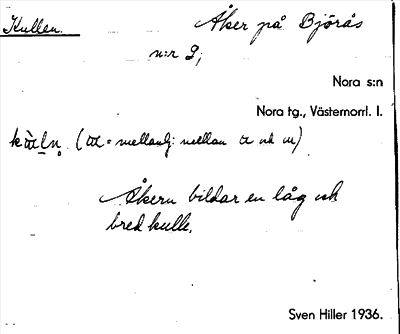 Kullen.
Åker på Björås
n:r 9;
Nora s:n
Nora tg., Västernorrl. l.
(
= mellanlj. mellan
och
)
Åkern bildar en låg och
bred kulle.
Sven Hiller 1936.